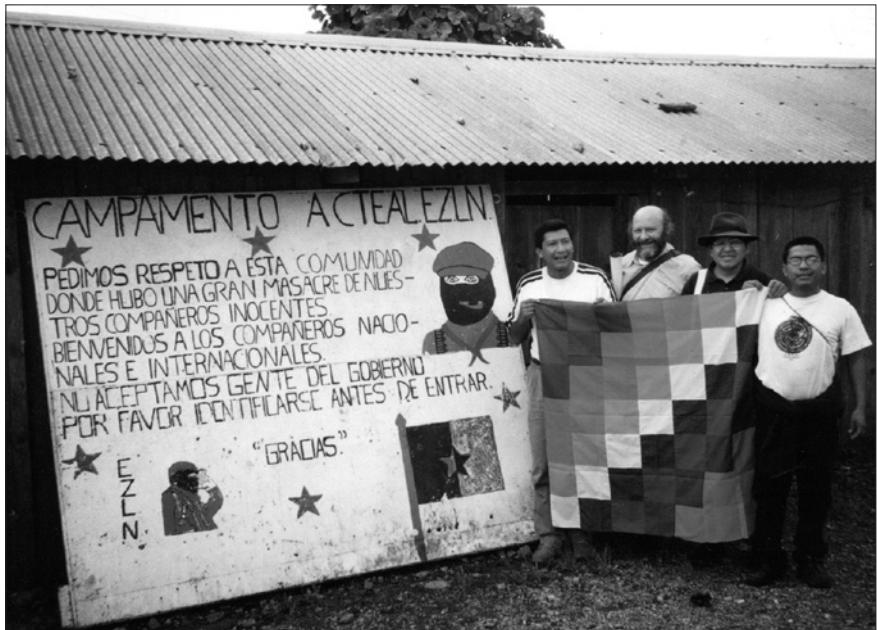 CAMPAMENTO ACTEAL.EZLN.
PEDIMOS RESPETO A ESTA COMUNIDAD
DONDE HUBO UNA GRAN MASACRE DE NUES-
TROS COMPAÑEROS INOCENTES.
BIENVENIDOS A LOS COMPAÑEROS NACIO-
NALES E INTERNACIONALES.
NO ACEPTAMOS GENTE DEL GOBIERNO
POR FAVOR IDENTIFICARSE ANTES DE ENTRAR.
"GRACIAS."
EZLN.